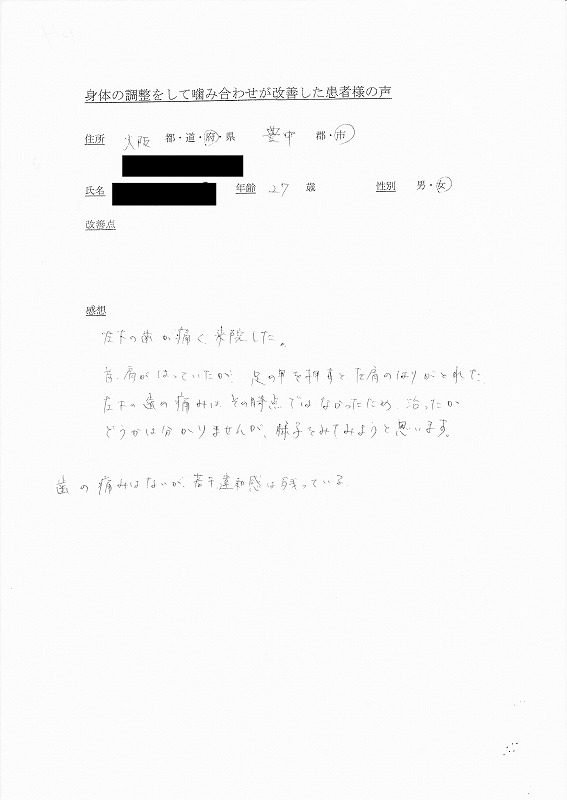 身体の調整をして噛み合わせが改善した患者様の声
住所 大阪 都・道・府・県 豊中 郡・市
氏名 年齢 27 歳 性別 男・女
改善点
感想
左下の歯が痛く、来院した。
首、肩がはっていたが、足の甲を押すと左肩のはりがとれた。
左下の歯の痛みは、その時点ではなかったため、治ったか
どうかは分かりませんが、様子をみてみようと思います。
歯の痛みはないが、若干違和感は残っている。